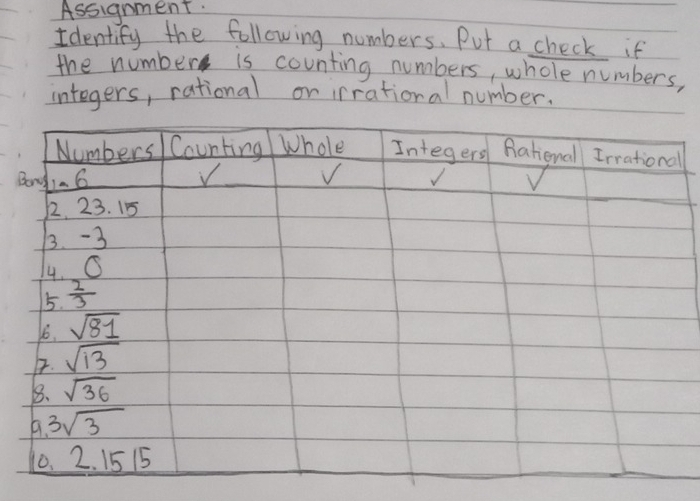 Assignment.
Identify the following numbers. Put a check if
the number is counting numbers, whole numbers,
integers, rational or irrational number.
Numbers Counting Whole Integers Rational Irrational
1. 6 ✓ ✓ ✓ ✓
2. 23.15
3. -3
4. 0
5. 2/3
6. √81
7. √13
8. √36
9. 3√3
10. 2.1515